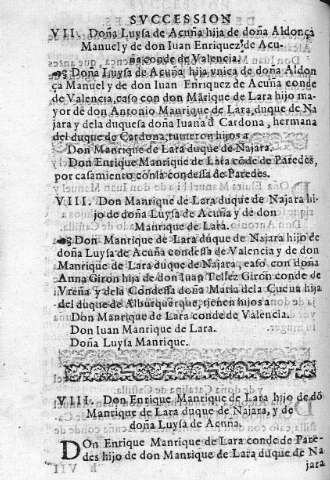 SVCCESSION
VII. Doña Luysa de Acuña hija de doña Aldonça
Manuel y de don Iuan Enriquez de Acu-
ña conde de Valencia.
Doña Luysa de Acuña hija vnica de doña Aldon
ça Manuel y de don Iuan Enriquez de Acuña conde
de Valencia, caso con don Manrique de Lara hijo ma-
yor de don Antonio Manrique de Lara duque de Na
jara y dela duquesa doña Iuana d Cardona, hermana
del duque de Cardona, tuuieron hijos a
Don Manrique de Lara duque de Najara.
Don Enrique Manrique de Lara cõde de Paredes,
por casamiento con la condessa de Paredes.
VIII. Don Manrique de Lara duque de Najara hi-
jo de doña Luysa de Acuña y de don
Manrique de Lara.
Don Manrique de Lara duque de Najara hijo de
doña Luysa de Acuña condessa de Valencia y de don
Manrique de Lara duque de Najara, caso con doña
Anna Giron hija de don Iuan Tellez Giron conde de
Vreña y dela Condessa doña Maria dela Cueua hija
del duque de Alburquerque, tienen hijos a
Don Manrique de Lara conde de Valencia.
Don Iuan Manrique de Lara.
Doña Luysa Manrique.
VIII. Don Enrique Manrique de Lara hijo de dõ
Manrique de Lara duque de Najara, y de
doña Luysa de Acuña.
DOn Enrique Manrique de Lara conde de Pare-
des hijo de don Manrique de Lara duque de Na
jara